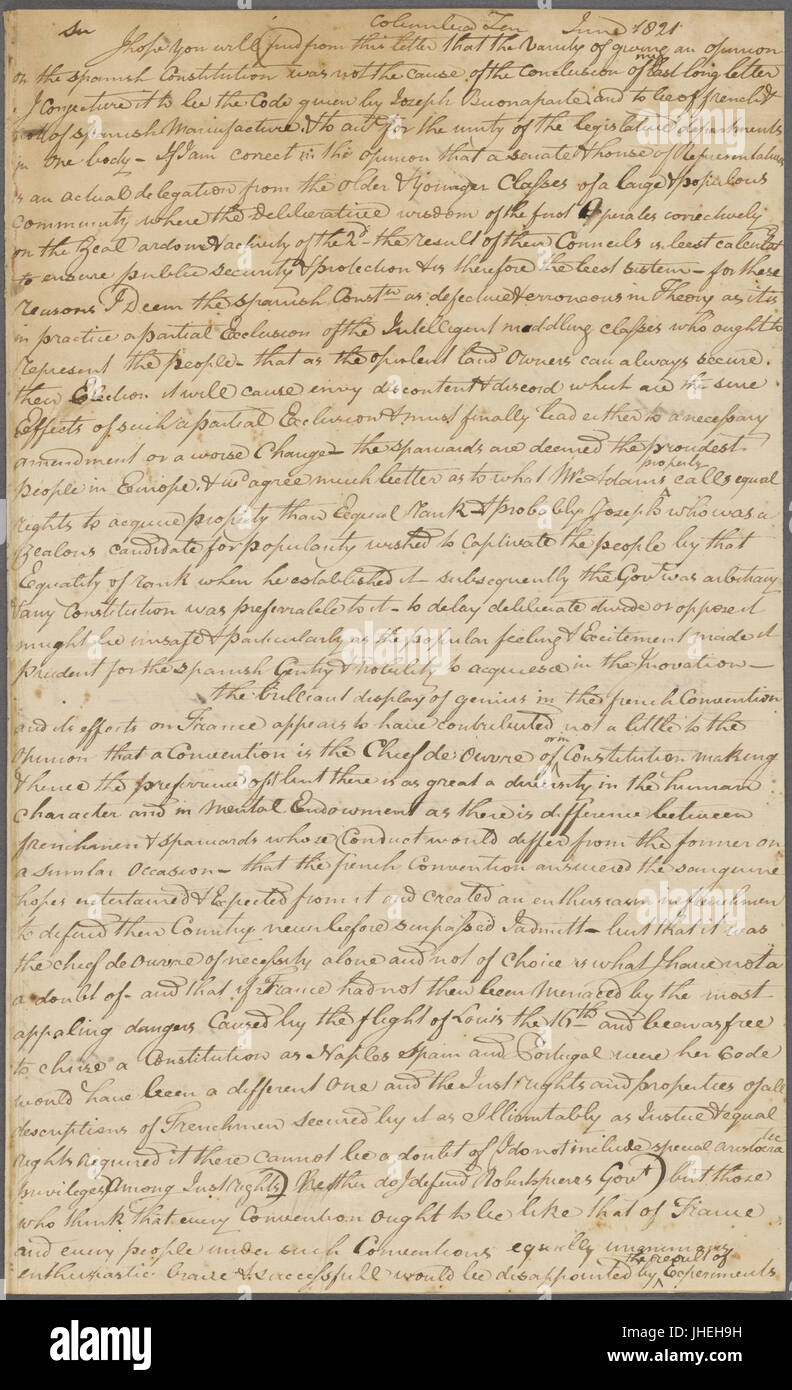 Columbia Ten June 1821
Sir
I hope you will find from this letter that the Vanity of giving an opinion
on the Spanish Constitution was not the cause of the conclusion of my last long letter
I conjecture it to be the Code given by Joseph Buonaparte, and to be of french &
not of Spanish Manufacture, & to act for the unity of the legislative departments
in one body – If I am correct in the opinion that a senate & house of Representatives
is an actual delegation from the older & younger Classes of a large & populous
Community where the deliberative wisdom of the first Operates correctively
on the Zeal ardour & activity of the 2d the result of their Councils is best calculated
to ensure public security & protection & is therefore the best sistem – for these
reasons I Deem the Spanish Constn as defective & erroneous in Theory as it is
in practice a partial Exclusion of the Intellegent middling classes who ought to
represent the people – that as the opulent land Owners can always secure
their Election it will cause envy discontent & discord which are the sure
Effects of such a partial Exclusion & must finally lead either to a necessary
amendment or a worse Change – the Spaniards are deemed the proudest
people in Europe, & wd agree much better as to what Mr Adams properly calls equal
rights to acquire property than Equal rank & probably Joseph who was a
Zealous candidate for popularity wished to Captivate the people by that
Equality of rank when he established it – subsequently the Govt was arbitrary
& any Constitution was preferrable to it – to delay deliberate divide or oppose it
might be unsafe & particularly as the popular feeling & Excitement made it
prudent for the Spanish Gentry & Nobility to acquiesce in the Inovation –
the brilliant display of genius in the french Convention
and its effects on France appears to have contributed not a little to the
opinion that a Convention is the Chief de ouvre of Constitution making
& hence the preference of it but there is as great a diversity in the human
character and in Mental Endowment as there is difference between
frenchmen & Spaniards whose Conduct would differ from the former on
a similar Occasion – that the french Convention answered the sanguine
hopes entertained & Expected from it and created an enthusiasm in frenchmen
to defend their Country never before surpassed I admitt – but that it was
the chief de ouvre of necessity alone and not of choice is what I have not a
a doubt of – and that if France had not then been Menaced by the most
appaling dangers caused by the flight of Louis the 16th and been as free
to chuse a Constitution as Naples Spain and Portugal were her Code
would have been a different One and the Just rights and properties of all
descriptions of Frenchmen secured by it as Illimitably as Justice & equal
rights required it there cannot be a doubt of I do not include special aristocratic
priviledges Among Just rights) Neither do I defend Robertspieres Govt) but those
who think that every Convention ought to be like that of France
and every people under such Conventions equally unanimous
enthusiastic brave & successfull would be disappointed by the result of Experiments
alamy
Image ID: JHEH9H
www.alamy.com